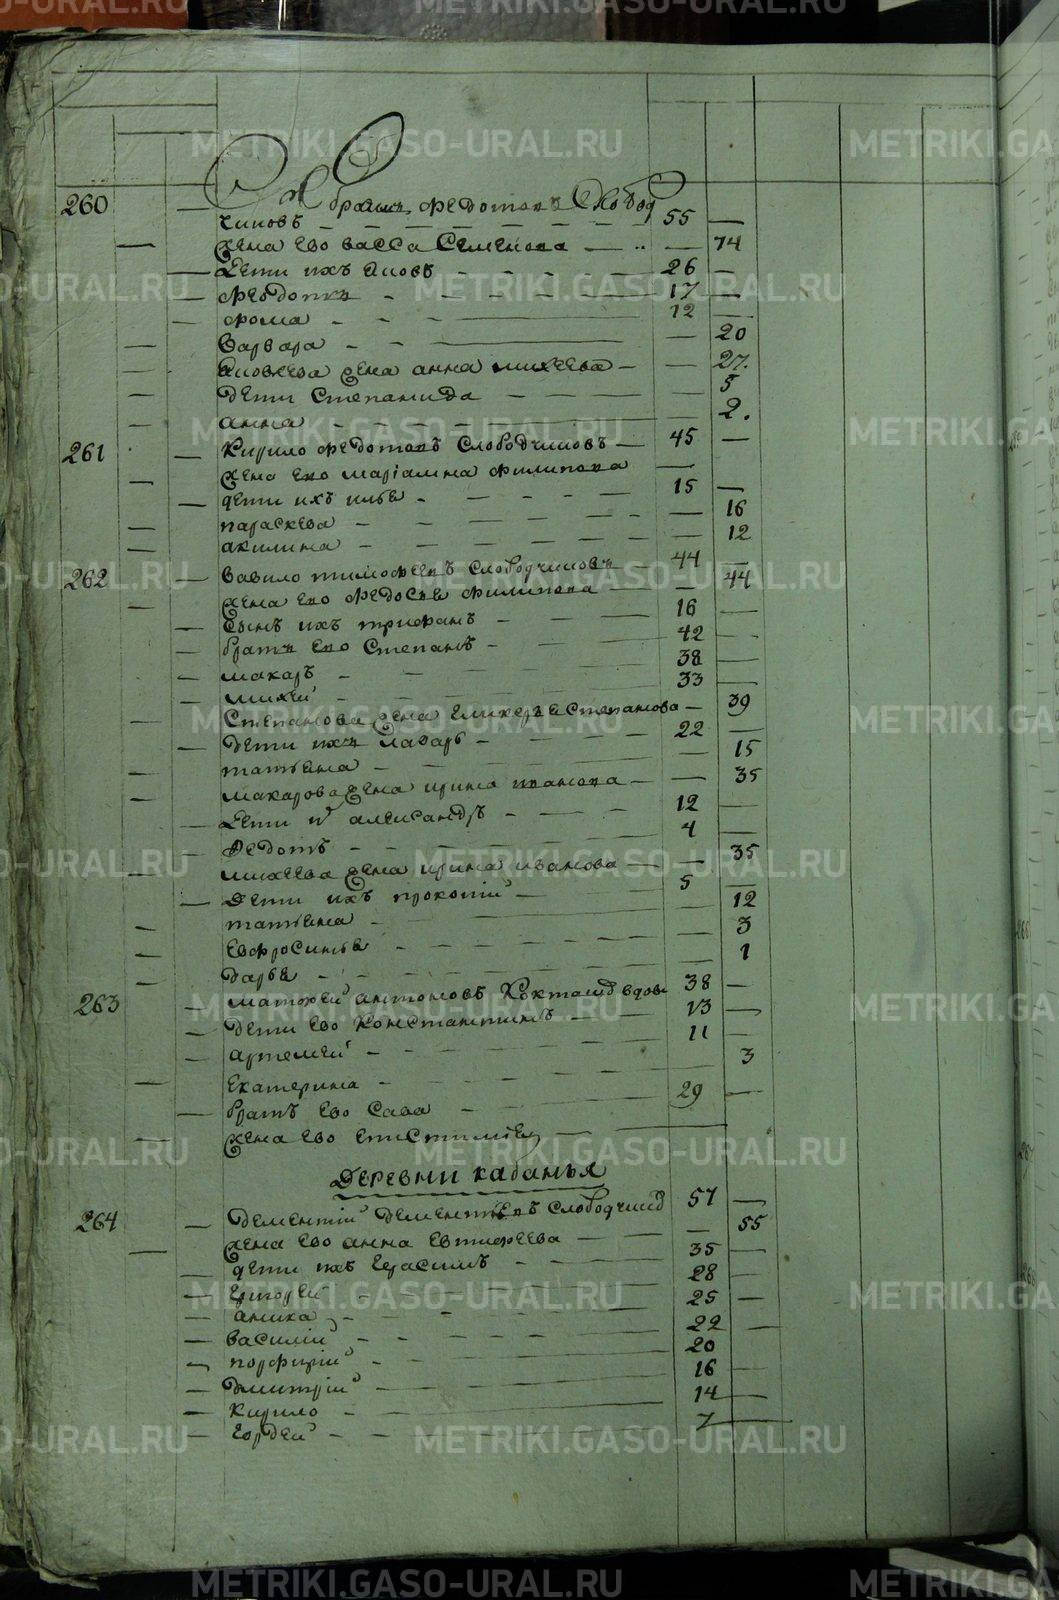 METRIKI.GASO-URAL.RU
260 федотовъ Слобод
чиковъ 55
жена ево васса Семенова 74
Дети ихъ яковъ 26
федотъ 17
фома 12
варвара 20
яковлева жена анна михеева 27.
дети Степанида 5
анна 2.
261 Кирило федотовъ Слободчиковъ 45
жена ево маріамна филипова
дети ихъ илья 15
параскева 16
акилина 12
262 вавило тимофеевъ слободчиковъ 44
жена ево федосья филипова 44
Сынъ ихъ трифанъ 16
братъ ево Степанъ 42
макаръ 38
михей 33
Степанова жена Степанова 39
Дети ихъ лазарь 22
татьяна 15
макарова жена ирина иванова 35
Дети александръ 12
Федотъ 4
михеева жена ирина иванова 35
Дети ихъ прокопій 5
татьяна 12
Евфросинья 3
дарья 1
263 матфей антоновъ вдовъ 38
Дети ево Константинъ 13
артемей 11
Екатерина 3
братъ ево Сава 29
жена ево епистимія
Деревни кабанья
264 дементій дементьевъ слободчиковъ 57
жена ево анна евтифеева 55
дети ихъ герасимъ 35
григорей 28
аника 25
василий 22
порфирий 20
дмитрій 16
Кирило 14
гордей 7